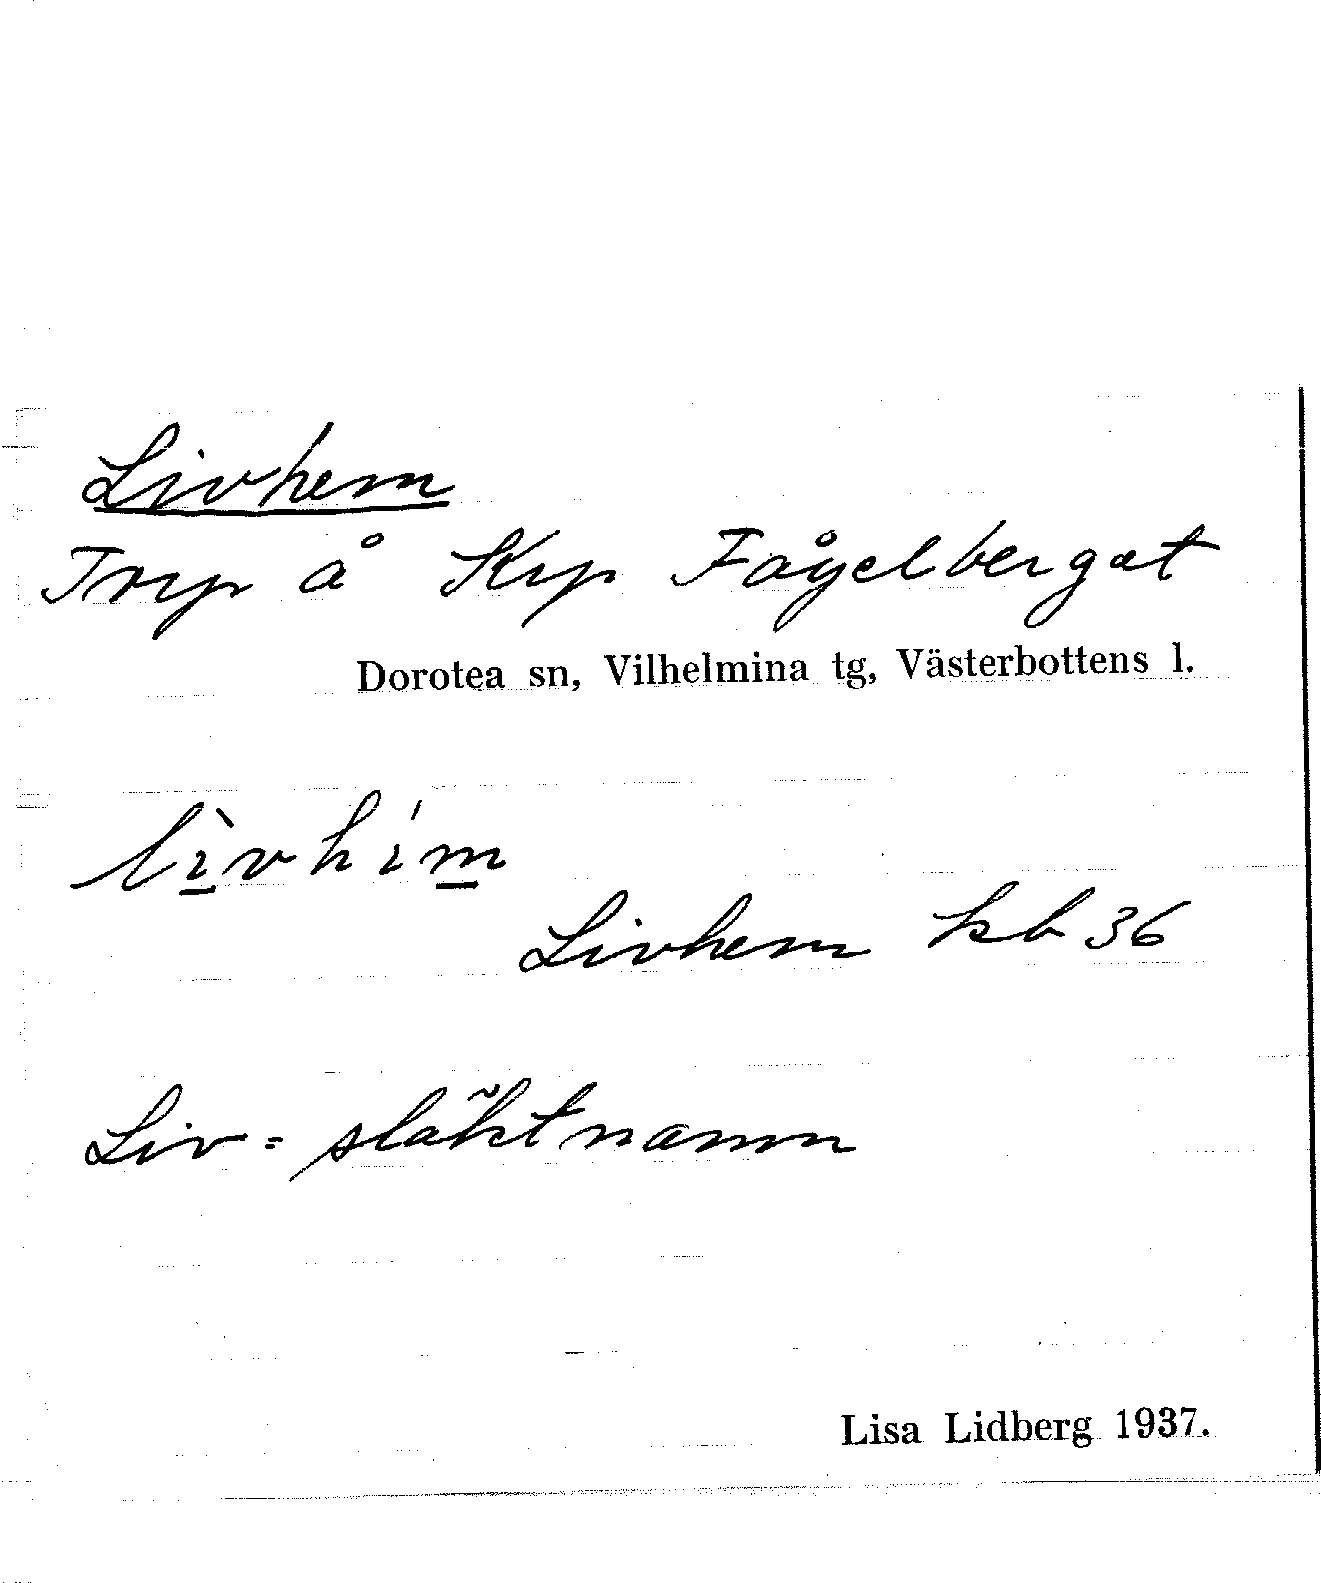 Livhem
Torp å Krp Fågelberget
Dorotea sn, Vilhelmina tg, Västerbottens l.
lìvhím
Livhem kb 36
Liv = släktnamn
Lisa Lidberg 1937.